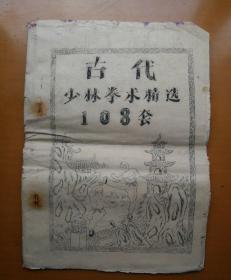 古代
少林拳术精选
108套